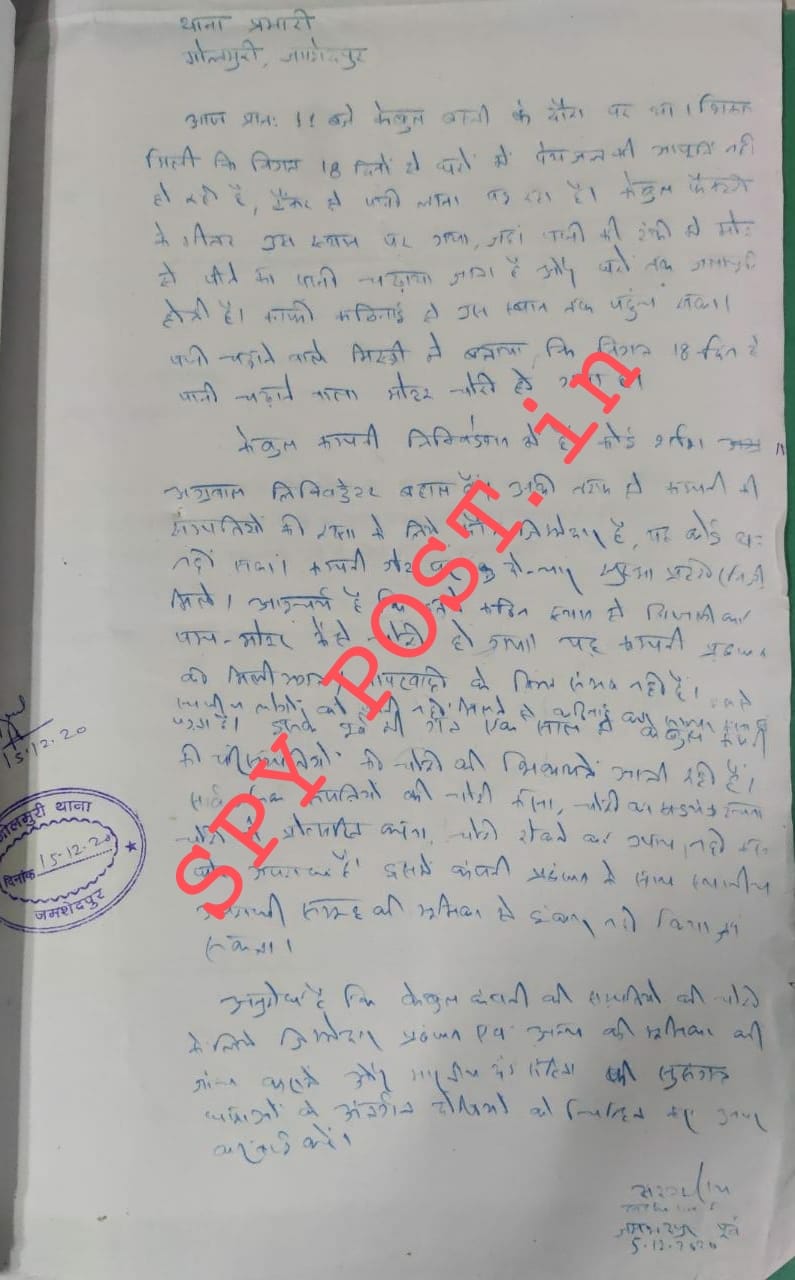 थाना प्रभारी
गोलमुरी, जमशेदपुर
आज प्रातः 11 बजे केबुल बस्ती के दौरा पर था।
मिली कि विगत 18 दिनों से घरों में पेयजल की आपूर्ति नहीं
हो रही है, टैंकर से पानी लाना पड़ रहा है। केबुल कंपनी
के भीतर उस स्थान पर गया, जहां पानी की टंकी से मोटर
से पीने का पानी चढ़ाया जाता है और घरों तक जलापूर्ति
होती है। काफी कठिनाई से उस स्थान तक पहुंच सका।
पानी चढ़ाने वाले मिस्त्री ने बताया कि विगत 18 दिन से
पानी चढ़ाने वाला मोटर चोरी हो गया है।
केबुल कंपनी लिक्विडेशन में है। कोई
अग्रवाल लिक्विडेटर बहाल हैं। उनकी तरफ से कंपनी की
सम्पत्तियों की रक्षा के लिये कौन जिम्मेदार है, यह कोई बता
नहीं सका। कंपनी गेट पर दो-चार सुरक्षा प्रहरी
मिले। आश्चर्य है कि इतने कठिन स्थान से
मोटर कैसे चोरी हो गया। यह कंपनी प्रबंधन
की लापरवाही के बिना संभव नहीं है।
एक साल से केबुल कंपनी
की परिसंपत्तियों की चोरी की शिकायतें आती रही हैं।
सम्पत्तियों की चोरी करना, चोरी का षडयंत्र रचना
चोरी को प्रोत्साहित करना, चोरी रोकने का उपाय नहीं
अपराध है। इसमें कंपनी प्रबंधन के साथ स्थानीय
अपराधी समूह की भूमिका से इंकार नहीं किया जा
सकता।
अनुरोध है कि केबुल कंपनी की सम्पत्तियों की चोरी
के लिये जिम्मेदार प्रबंधन एवं अन्य की भूमिका की
जांच करायें और भारतीय दंड संहिता की सुसंगत
धाराओं के अंतर्गत दोषियों को चिन्हित कर उनपर
कार्रवाई करें।
जमशेदपुर पूर्व
5.12.2020
15.12.20
गोलमुरी थाना
दिनांक 15-12-20
जमशेदपुर
SPY POST.in